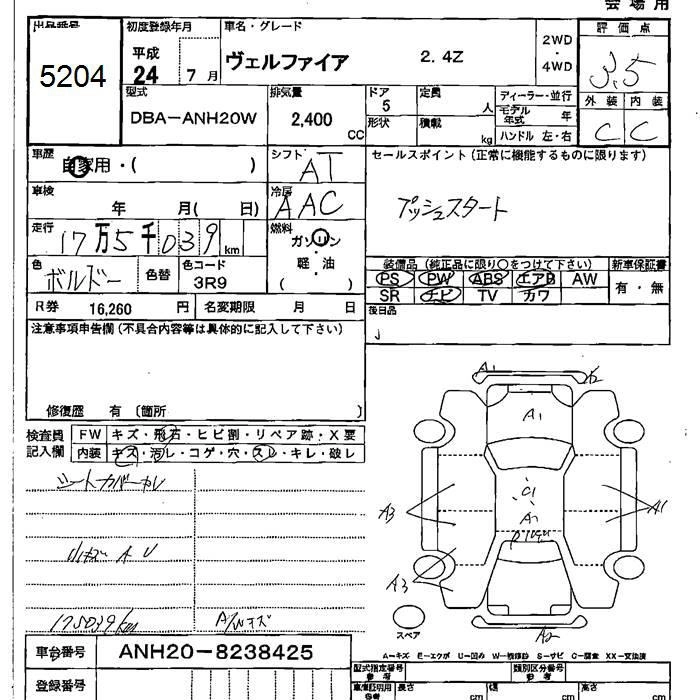 会場用
出品番号
5204
初度登録年月
平成
24 7月
車名・グレード
ヴェルファイア 2.4Z
2WD
4WD
評価点
3.5
外装 内装
C C
型式
DBA-ANH20W
排気量
2,400 CC
ドア
5
形状
定員
人
積載
kg
ディーラー・並行
モデル年式 年
ハンドル 左・右
車歴
自家用・( )
シフト
AT
セールスポイント(正常に機能するものに限ります)
プッシュスタート
車検
年 月( 日)
冷房
AAC
走行
17万5千039km
燃料
ガソリン
軽・油
( )
色
ボルドー
色替
色コード
3R9
装備品(純正品に限り○をつけて下さい)
新車保証書
PS PW ABS エアB AW
有・無
SR ナビ TV カワ
R券 16,260 円 名変期限 月 日
後日品
注意事項申告欄(不具合内容等は具体的に記入して下さい)
修復歴 有 〔箇所 〕
検査員
記入欄
FW キズ・飛石・ヒビ割・リペア跡・X要
内装 キズ・汚レ・コゲ・穴・スレ・キレ・破レ
シートカバー
小キズ A U
175039km
A/Wキズ
A1
A1
C1
A3
A1
A3
A2
スペア
A-キズ E-エクボ U-凹み W-補修跡 S-サビ C-腐食 XX-交換済
車台番号
ANH20-8238425
登録番号
型式指定番号
参考
類別区分番号
参考
車庫証明用
参考
長さ cm
幅 cm
高さ cm